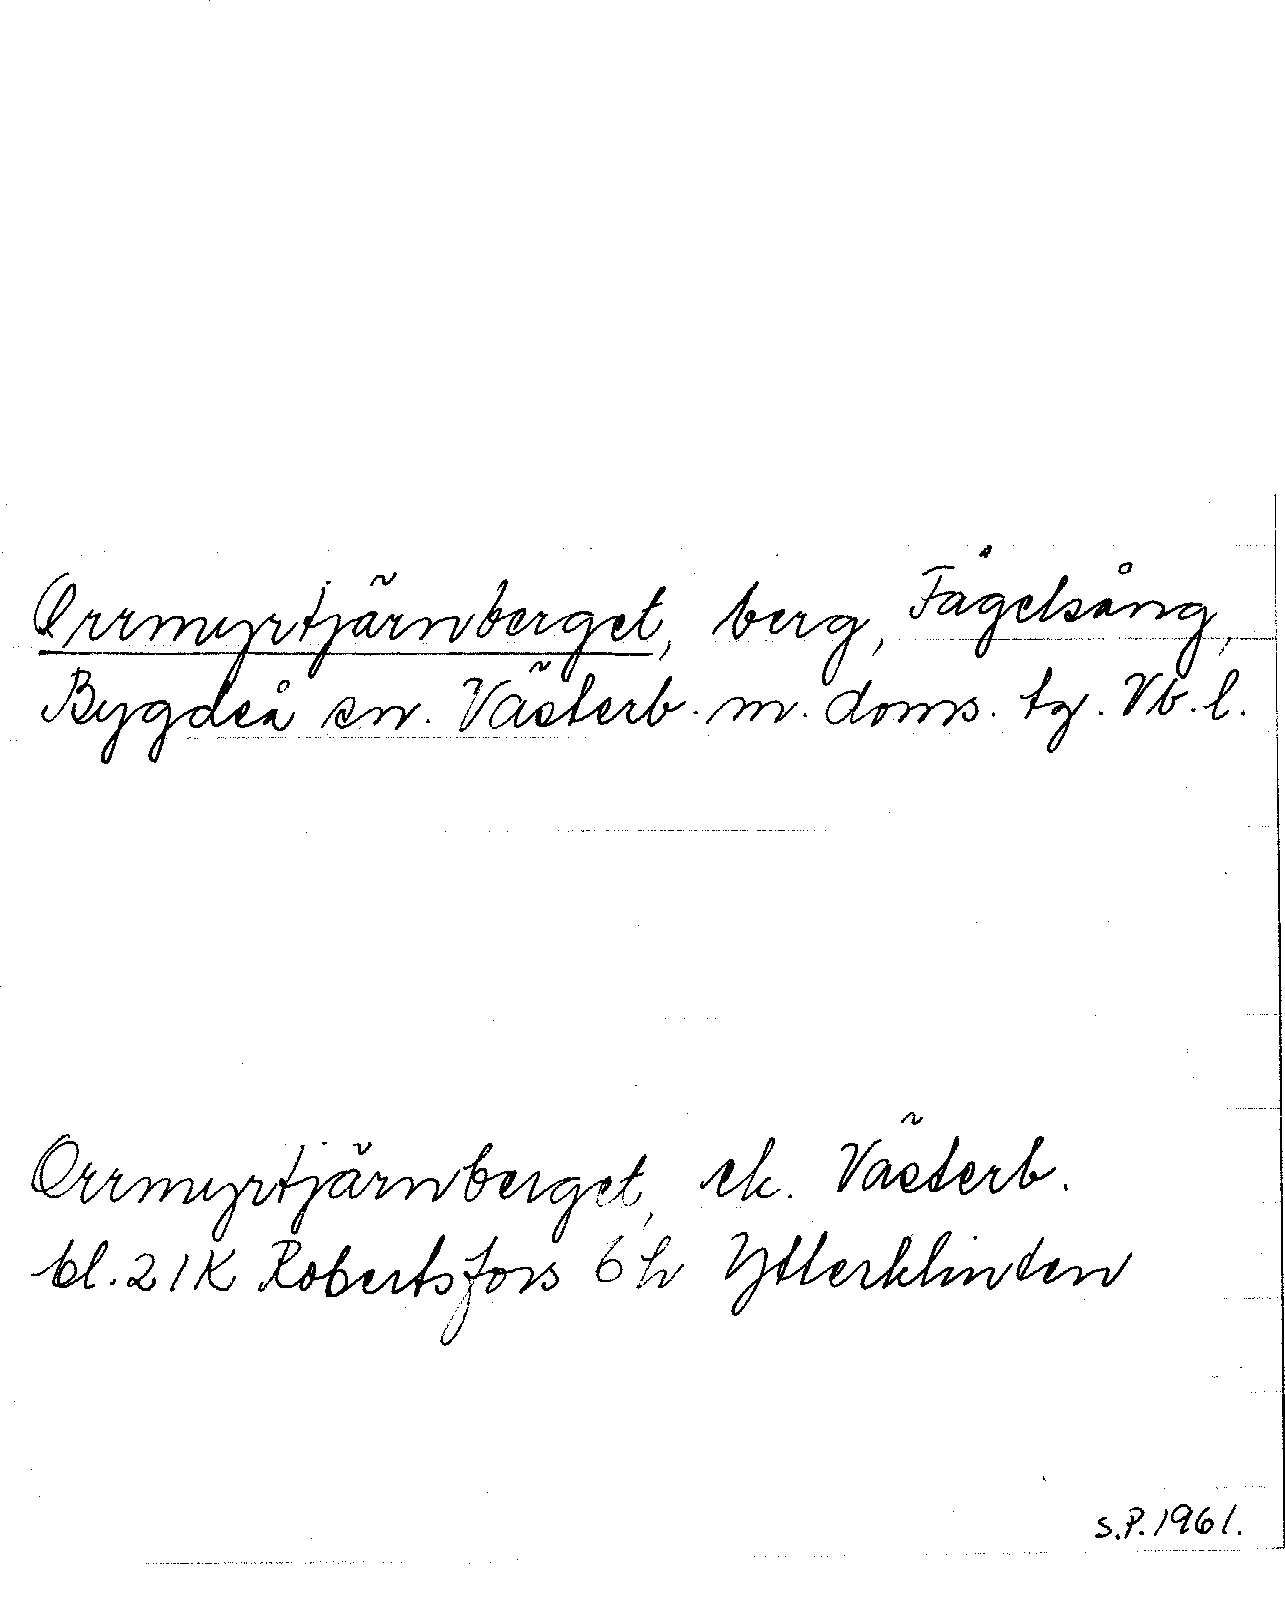 Orrmyrtjärnberget, berg, Fågelsång,
Bygdeå sn. Västerb. m. doms. tg. Vb. l.
Orrmyrtjärnberget, ek. Västerb.
bl. 21K Robertsfors 6 h Ytterklinten
S.P. 1961.